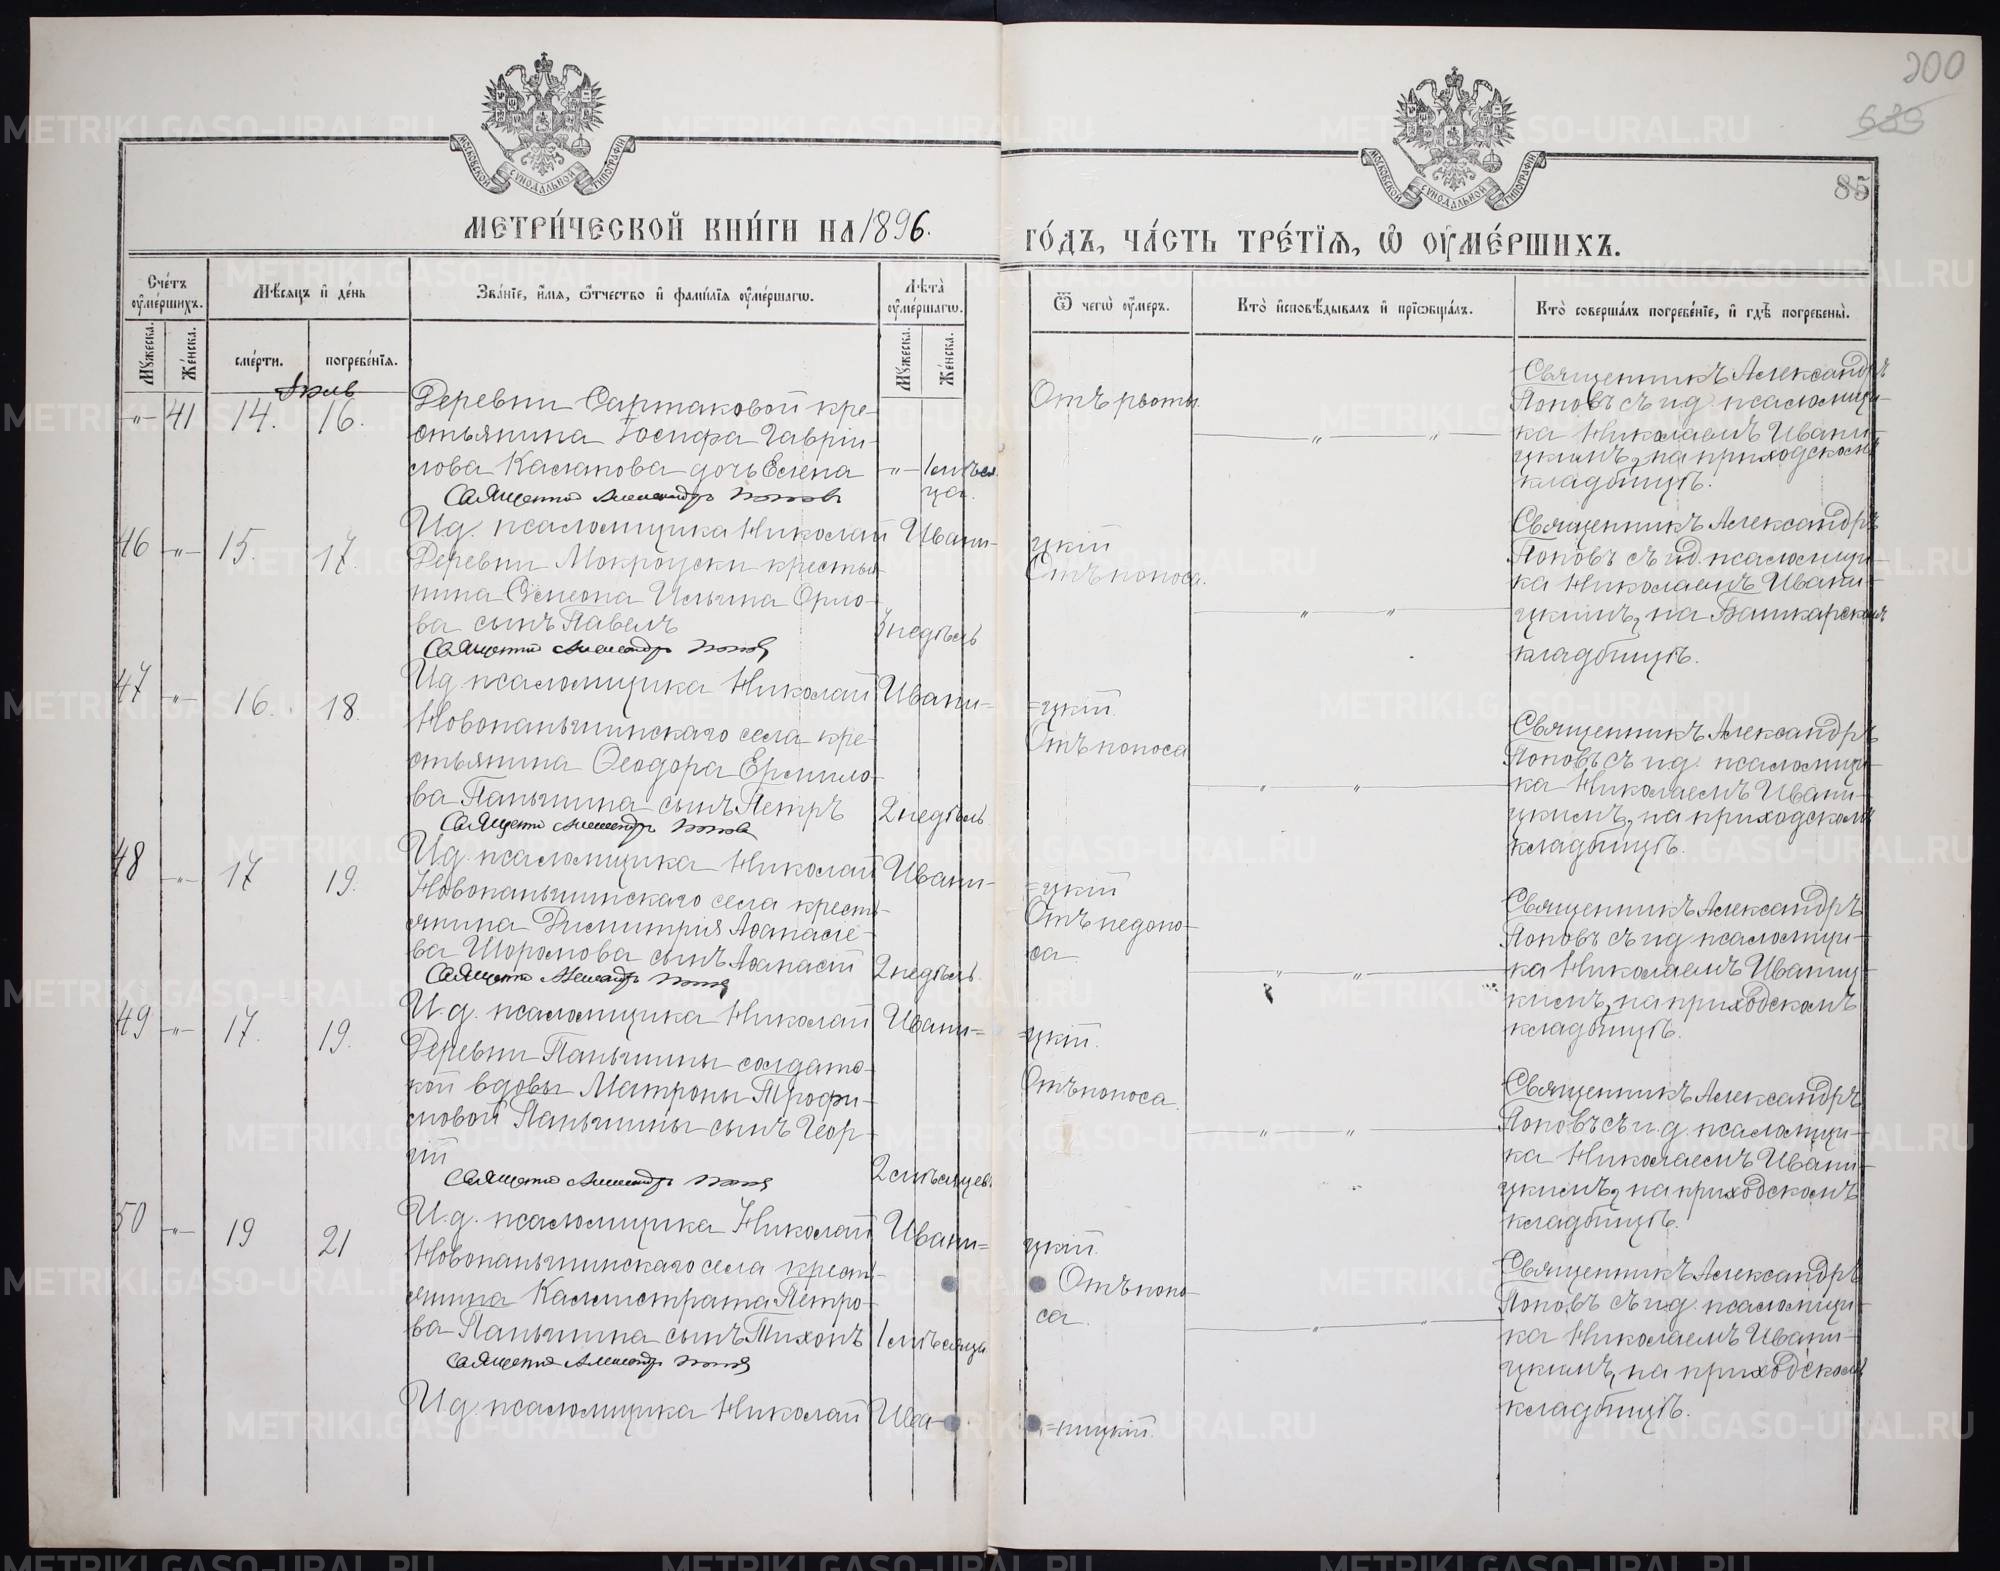 200
635
85
МОСКОВСКОЙ СУНОДАЛЬНОЙ ТИПОГРАФІИ
МОСКОВСКОЙ СУНОДАЛЬНОЙ ТИПОГРАФІИ
МЕТРИ́ЧЕСКОЙ КНИ́ГИ НА 1896.
ГО́ДЪ, ЧА́СТЬ ТРЕ́ТІѦ, Ѡ҆ ОУ҆МЕ́РШИХЪ.
Сче́тъ оу҆ме́ршихъ.
Мꙋ́жеска.
Же́нска.
Мѣ́сяцъ и҆ де́нь
сме́рти.
погребе́нїя.
Зва́нїе, и҆́мя, ѻ҆́тчество и҆ фамилїя оу҆ме́ршагѡ.
Лѣ́та оу҆ме́ршагѡ.
Мꙋ́жеска.
Же́нска.
Ѿ чегѡ̀ оу҆́меръ.
Кто̀ и҆сповѣ́дывалъ и҆ прїѡбща́лъ.
Кто̀ соверша́лъ погребе́нїе, и҆ гдѣ̀ погребены̀.
Іюль
-"- 41 14. 16.
Деревни Сартаковой кре-
стьянина Іосифа Гаврiи-
лова Касланова дочь Елена
-"- 1 мѣся
ца.
Священно Александръ Поповъ
Отъ рвоты
" "
Священникъ Александръ
Поповъ съ и д. псаломщи-
ка Николаемъ Ивани-
цкимъ, на приходскомъ
кладбищѣ.
И д. псаломщика Николай Ивани-
цкій
46 -"- 15. 17.
Деревни Мокроуски крестья-
нина Сѵмеона Ильина Орло-
ва сынъ Павелъ
3 недѣль
Священно Александръ Поповъ
Отъ поноса.
" "
Священникъ Александръ
Поповъ съ и д. псаломщи-
ка Николаемъ Ивани-
цкимъ, на Башкарскомъ
кладбищѣ.
И д. псаломщика Николай Ивани=
=цкій.
47 -"- 16. 18.
Новопаньшинскаго села кре-
стьянина Ѳеодора Ермило-
ва Паньшина сынъ Петръ
2 недѣль
Священно Александръ Поповъ
Отъ поноса
" "
Священникъ Александръ
Поповъ съ и д. псаломщи-
ка Николаемъ Ивани-
цкимъ, на приходскомъ
кладбищѣ.
И д. псаломщика Николай Ивани-
=цкій
48 -"- 17 19.
Новопаньшинскаго села кресть-
янина Димитрія Аѳанасье-
ва Шоромова сынъ Аѳанасій
2 недѣль.
Священно Александръ Поповъ
Отъ недоно-
са.
" "
Священникъ Александръ
Поповъ съ и д псаломщи-
ка Николаемъ Иваниц-
кимъ, на приходскомъ
кладбищѣ.
И. д. псаломщика Николай Ивани=
=цкій.
49 -"- 17. 19.
Деревни Паньшины солдатс-
кой вдовы Матроны Трофи-
мовой Паньшины сынъ Геор-
гій
2 мѣсяцевъ
Священно Александръ Поповъ
Отъ поноса.
" "
Священникъ Александръ
Поповъ съ и. д. псаломщи-
ка Николаемъ Ивани-
цкимъ, на приходскомъ
кладбищѣ.
И. д. псаломщика Николай Ивани=
цкій.
50 -"- 19 21
Новопаньшинскаго села кресть-
янина Каллистрата Петро-
ва Паньшина сынъ Тихонъ
1 мѣсяца
Священно Александръ Поповъ
Отъ поно-
са.
" "
Священникъ Александръ
Поповъ съ и д. псаломщи-
ка Николаемъ Ивани-
цкимъ, на приходскомъ
кладбищѣ.
И д. псаломщика Николай Ива-
=ницкій.
METRIKI.GASO-URAL.RU